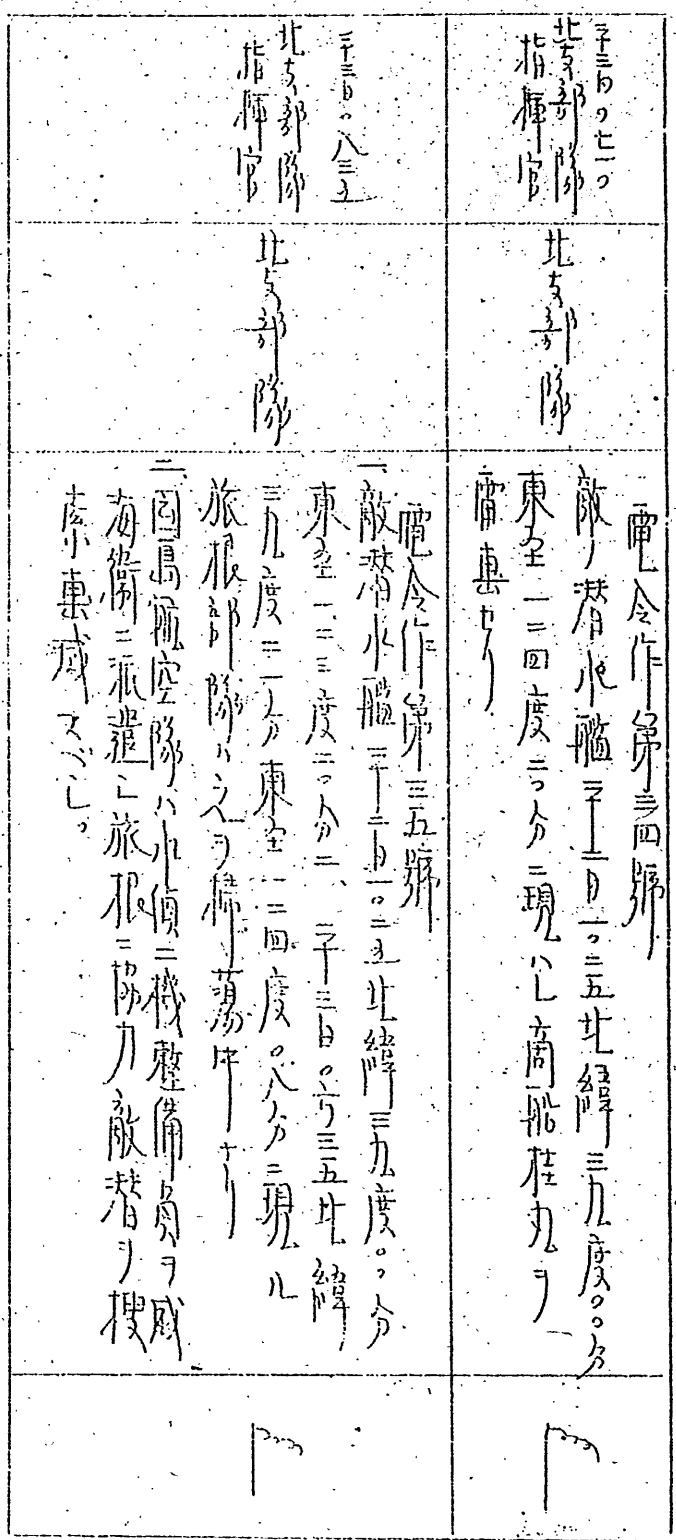 二十三日〇七一〇
北支部隊
指揮官
北支部隊
電令作第三四號
敵ノ潜水艦二十二日一〇二五北緯三九度〇〇分
東至一二四度二〇分ニ現ハレ商船桂丸ヲ
雷撃セリ
二十三日〇八三五
北支部隊
指揮官
北支部隊
電令作第三五號
一、敵潜水艦二十二日一〇二五北緯三九度〇〇分
東至一二三度二〇分ニ、二十三日〇六三五北緯
三九度二一分東至一二四度〇八分ニ現ル
旅根部隊ハ之ヲ掃蕩中ナリ
二、青島航空隊ハ水偵二機整備員ヲ威
海衛ニ派遣シ旅根ニ協力敵潜ヲ捜
索撃滅スベシ。